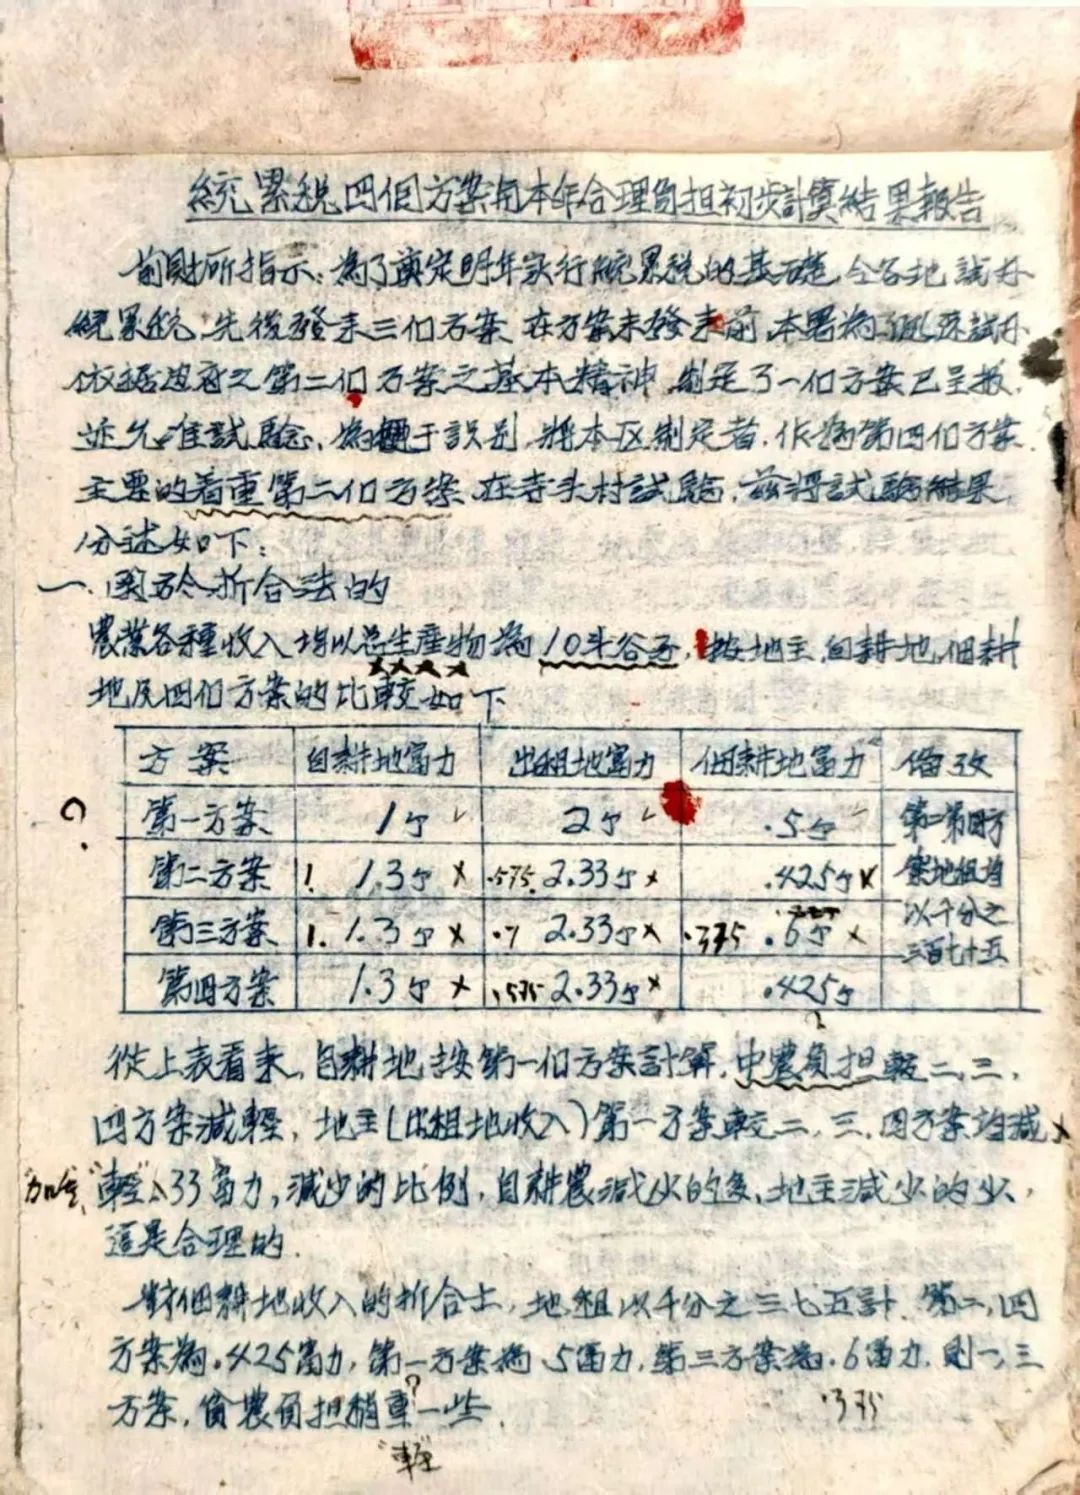 統累税四個方案與本年合理負担初步計算結果報告
前財所指示：為了奠定明年实行統累税的基礎，令各地試办
統累税，先後發来三们方案，在方案未發来前，本署為了迅速試办
依据边府之第二们方案之基本精神，制定了一们方案已呈报，
近允准試驗，為便于識别，將本区制定者，作為第四们方案
主要的着重第二们方案，在寺头村試驗，兹將試驗結果
分述如下：
一、関於折合法的
農業各種收入均以总生産物為10斗谷子，按地主，自耕地，佃耕
地及四们方案的比較如下
方案 自耕地富力 出租地富力 佃耕地富力 備攷
第一方案 1分 2分 .5分 第二第四方
? 第二方案 1. 1.3分 × .575. 2.33分 × .425分 × 案地租均
第三方案 1. 1.3分 × .7 2.33分 × .375 .6分 × 以千分之
三百七十五
第四方案 1.3分 × .575 2.33分 × .425分
?
從上表看来，自耕地按第一们方案計算，中農負担較二、三、
四方案減輕，地主(出租地收入)第一方案較二、三、四方案均減 ×
"加重" "輕" .33富力，減少的比例，自耕農減少的多，地主減少的少，
這是合理的．
對佃耕地收入的折合上，地租以千分之三七五計．第二，四
方案為.425富力，第一方案為.5富力，第三方案為.6富力．則一，三
?
方案，貧農負担稍重一些． .375
"輕"